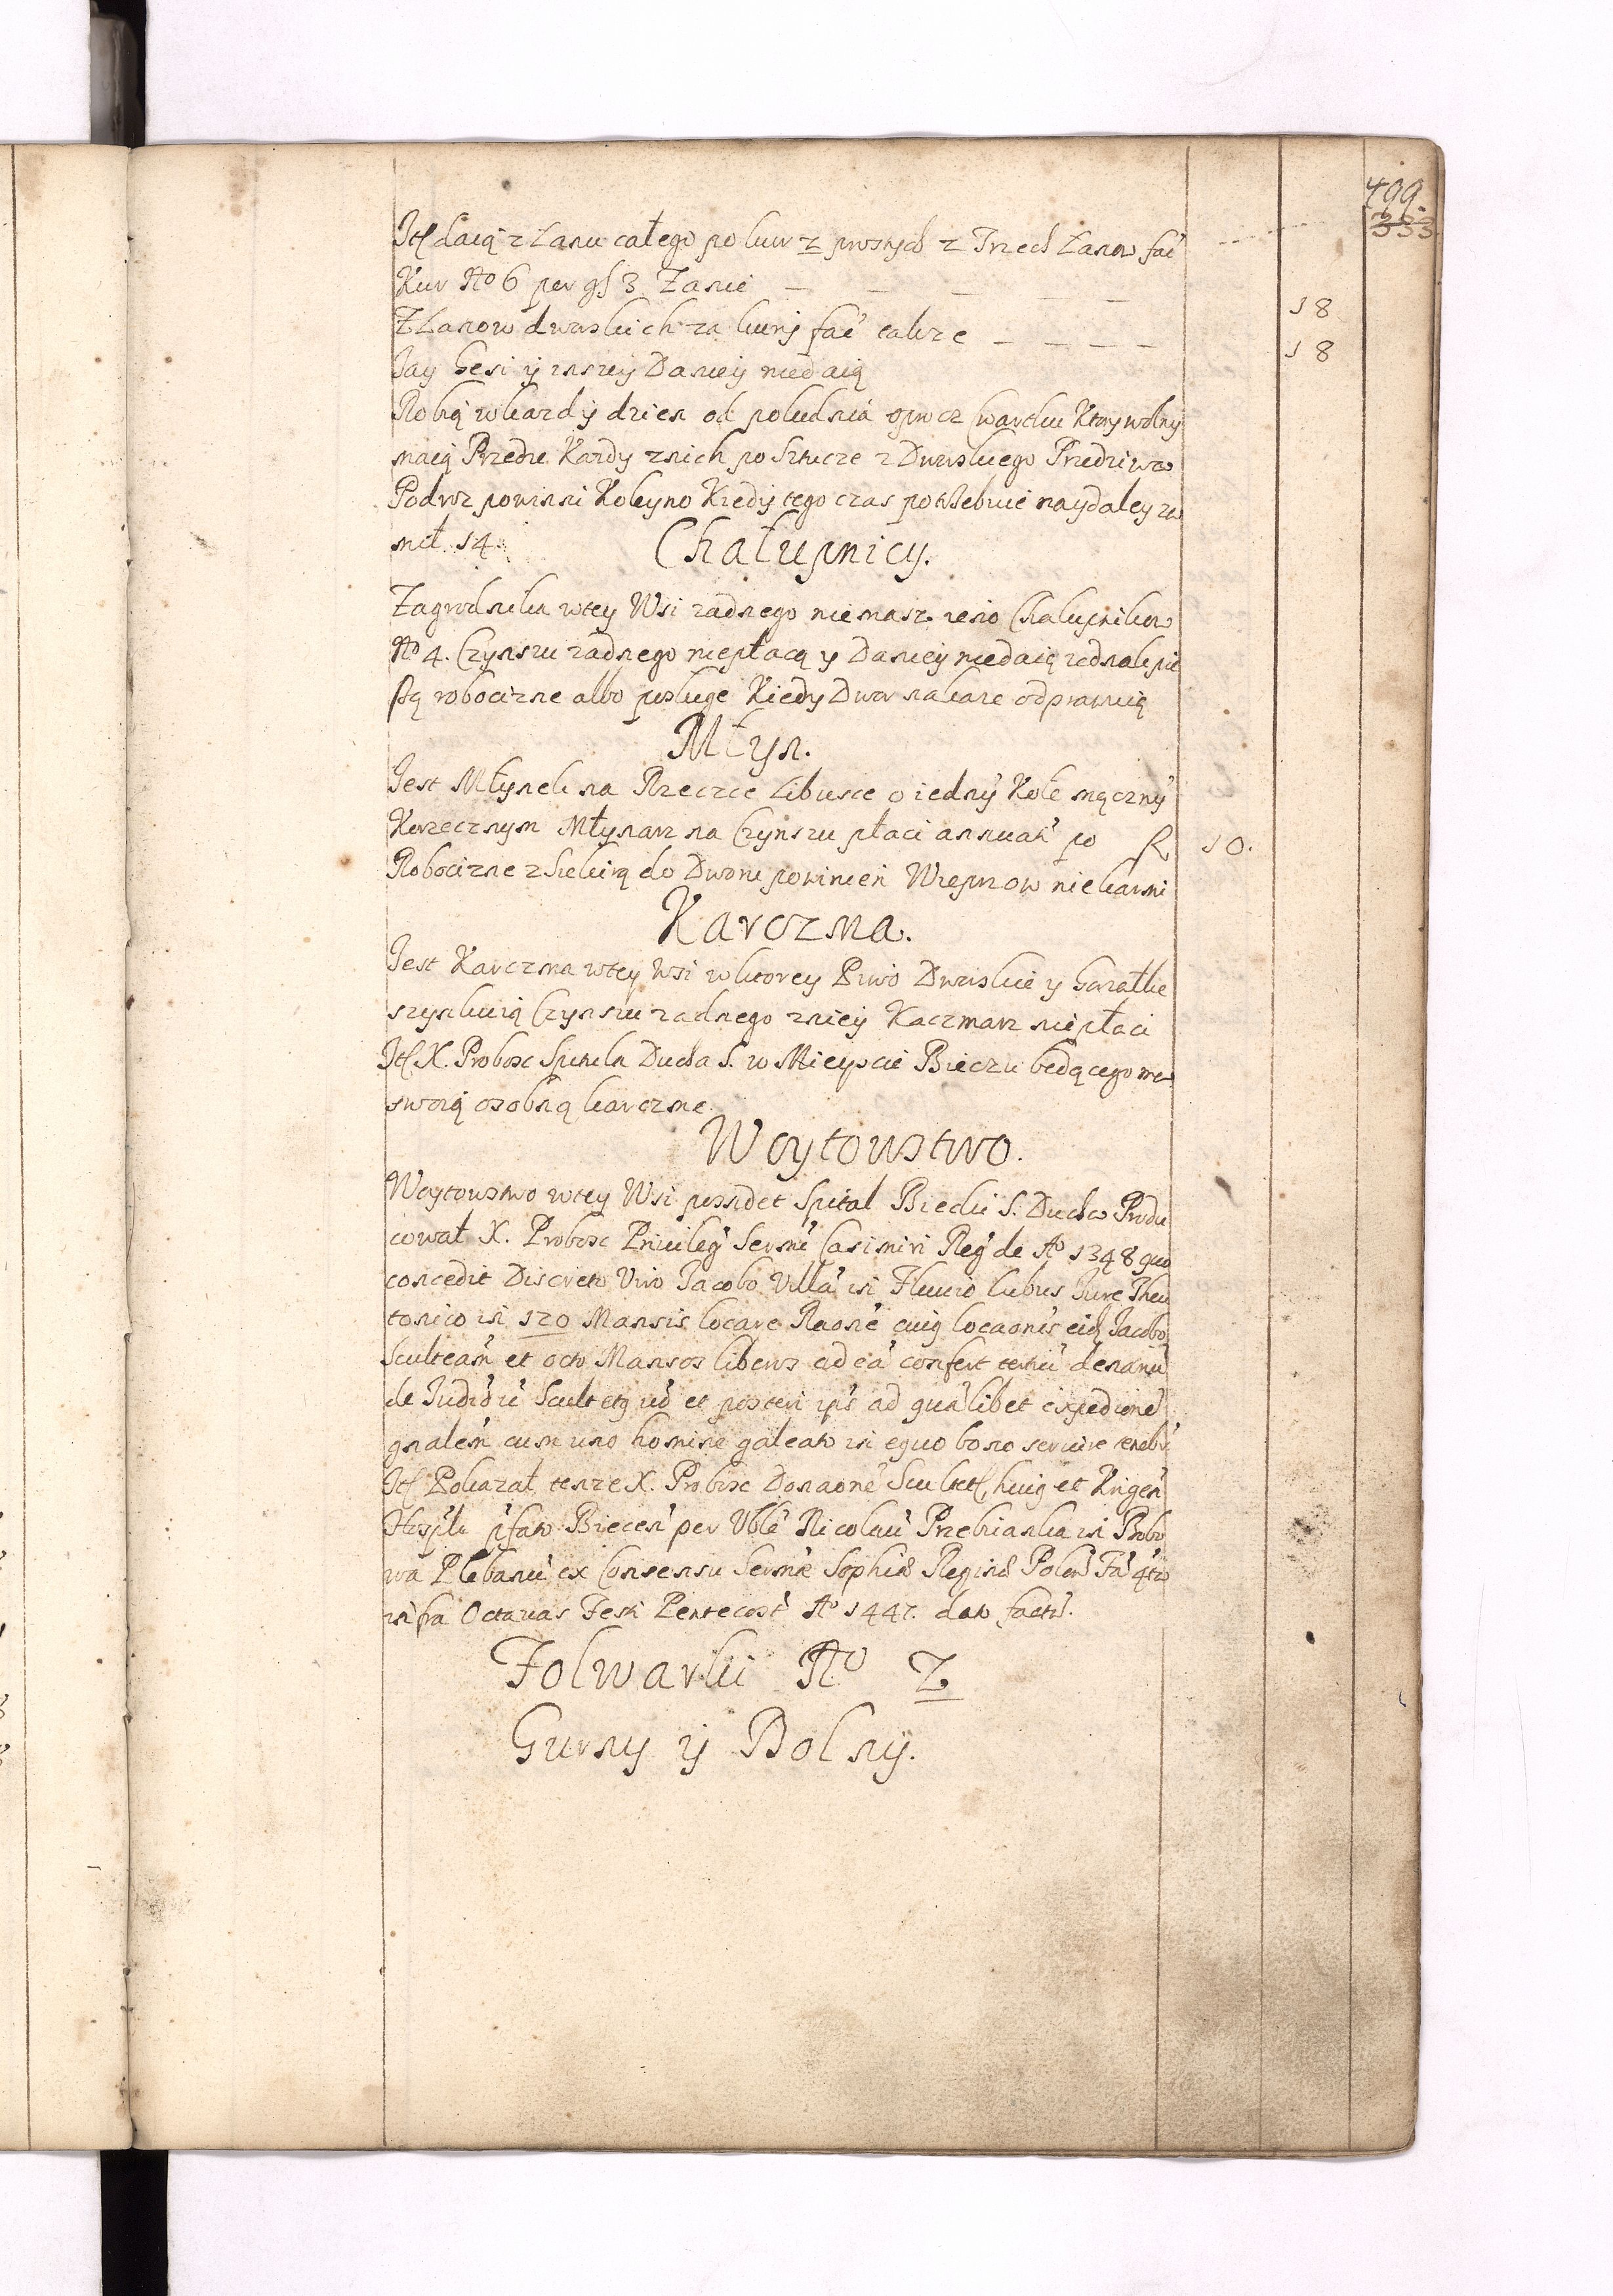 499.
333
Itẽ daią z Łanu całego po kur 2 prostych z Trzech Łanow fać
Kur No 6 per gſ 3 Zanie — — — — — 18
Z Łanow dworskich za kury fać także — — — — 18
Jay Gesi ÿ inszeÿ Danieÿ niedaią
Robią w kazdÿ dzien od południa oprocz Czwartku Ktory wolnÿ
maią Przedze Kazdy znich po Sztuce z Dworskiego Przedziwa
Podroz powinni Koleyno Kiedÿ tego czas potrzebuie naÿdaleÿ za
mil 14.
Chałupnicy.
Zagrodnika wtey Wsi zadnego niemasz ieno Chałupnikow
No 4. Czynszu zadnego niepłacą y Danieÿ niedaią iednak pie
szą robocizne albo posługe Kiedy Dwor nakaze odprawuią
Młyn.
Jest Młynek na Rzeczce Libusce o iednÿ Kole mącznÿ
Korzecznym Młynarz na Czynszu płaci annuatĩ po fl 10.
Robocizne z Siekirą do Dworu powinien Wieprzow nie karmi
Karczma.
Jest Karczma wtey Wsi w ktorey Piwo Dworskie y Gorzałke
szynkuią Czynszu zadnego znieÿ Kaczmarz niepłaci
Itẽ X. Probosc Spitala Ducha S. w Mieyscie Bieczu będącego ma
swoią osobną karczme.
Woytowstwo.
Woytowstwo wtey Wsi possidet Spital Biecki S. Ducha Produ
cował X. Probosc Priuileg̃ Sermĩ Casimiri Reg̃ de Ao 1348 quo
concedit Discreto Viro Jacobo Villã in Fluuio Lubus Jure Theu
tonico in 120 Mansis locare Raõne cuiq locaõnis eid Jacobo
Sculteãm et octo Mansos liberos ad eã confert tertiũ denariũ
de Judicĩũ Scultetq uõ et posteri ipĩ ad quãlibet expedionẽ
gnalem cum uno homine galeato in equo bono seruire tenebĩ
Itẽ Pokazał tenze X. Probosc Donaõnẽ Scultet, huiq et Krigeñ
Hospĩtli pfato Biecen per Vblẽ Nicolaũ Przebrianka in Bobo
wa Plebanũ ex Consensu Sermæ Sophiæ Reginæ Polõn Fã 4to
infra Octauas Festi Pentecost Ao 1447. dato factũ.
Folwarki No 2
Gurny ÿ Dolnÿ.